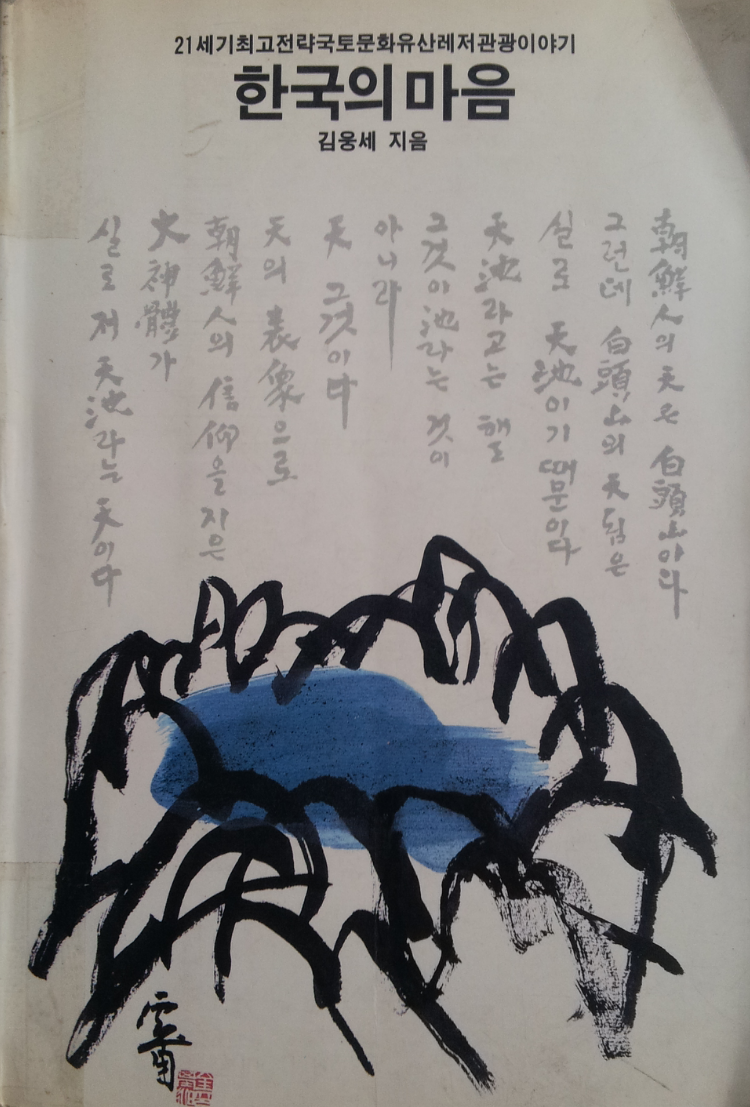 21세기최고전략국토문화유산레저관광이야기
한국의마음
김웅세 지음
朝鮮人의 天은 白頭山이다
그런데 白頭山의 天됨은
실로 天池이기 때문이다
天池라고는 해도
그것이 池라는 것이
아니라
天 그것이다
天의 表象으로
朝鮮人의 信仰을 지은
大神體가
실로 저 天池라는 天이다